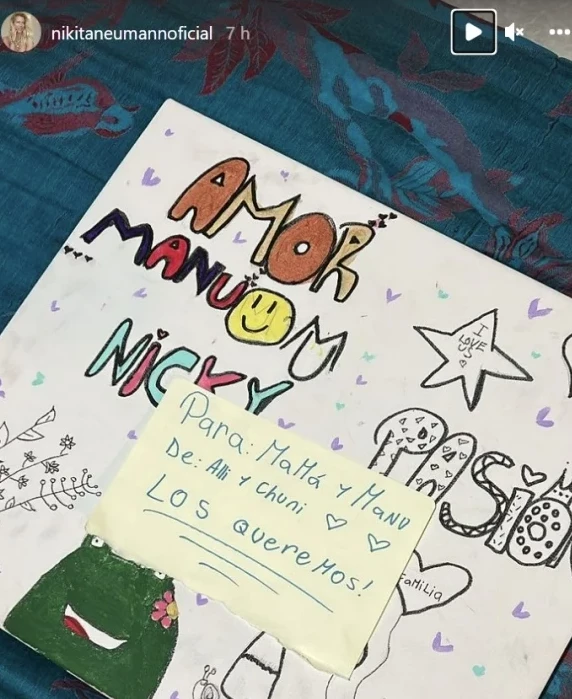 nikitaneumannoficial 7 h
AMOR
MANU
OM
NICKY
I
LOVE
US
PASiÓN
Para: MaMá y MaNU
De: Alli y Chuni
LOS QuereMos!
FaMiLia